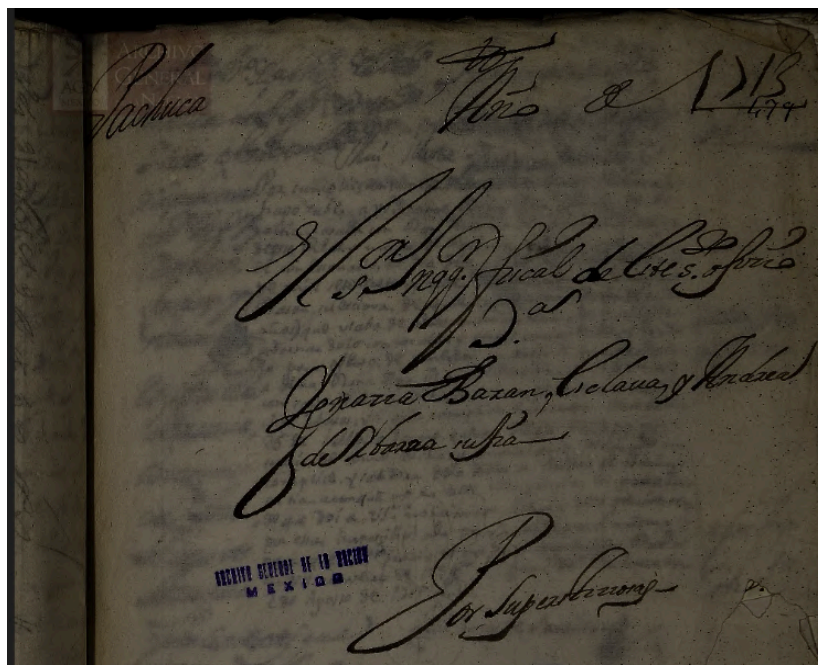 ARCHIVO
GENERAL
AGN
Pachuca
Año de 1715
474
El Sr. Inqq.r fiscal de este s.to ofiçio
D. as
Ignazia Bazan, Esclava, y Andrea
de Ybarra su hra
ARCHIVO GENERAL DE LA NACION
MEXICO
Por Supersticiosas